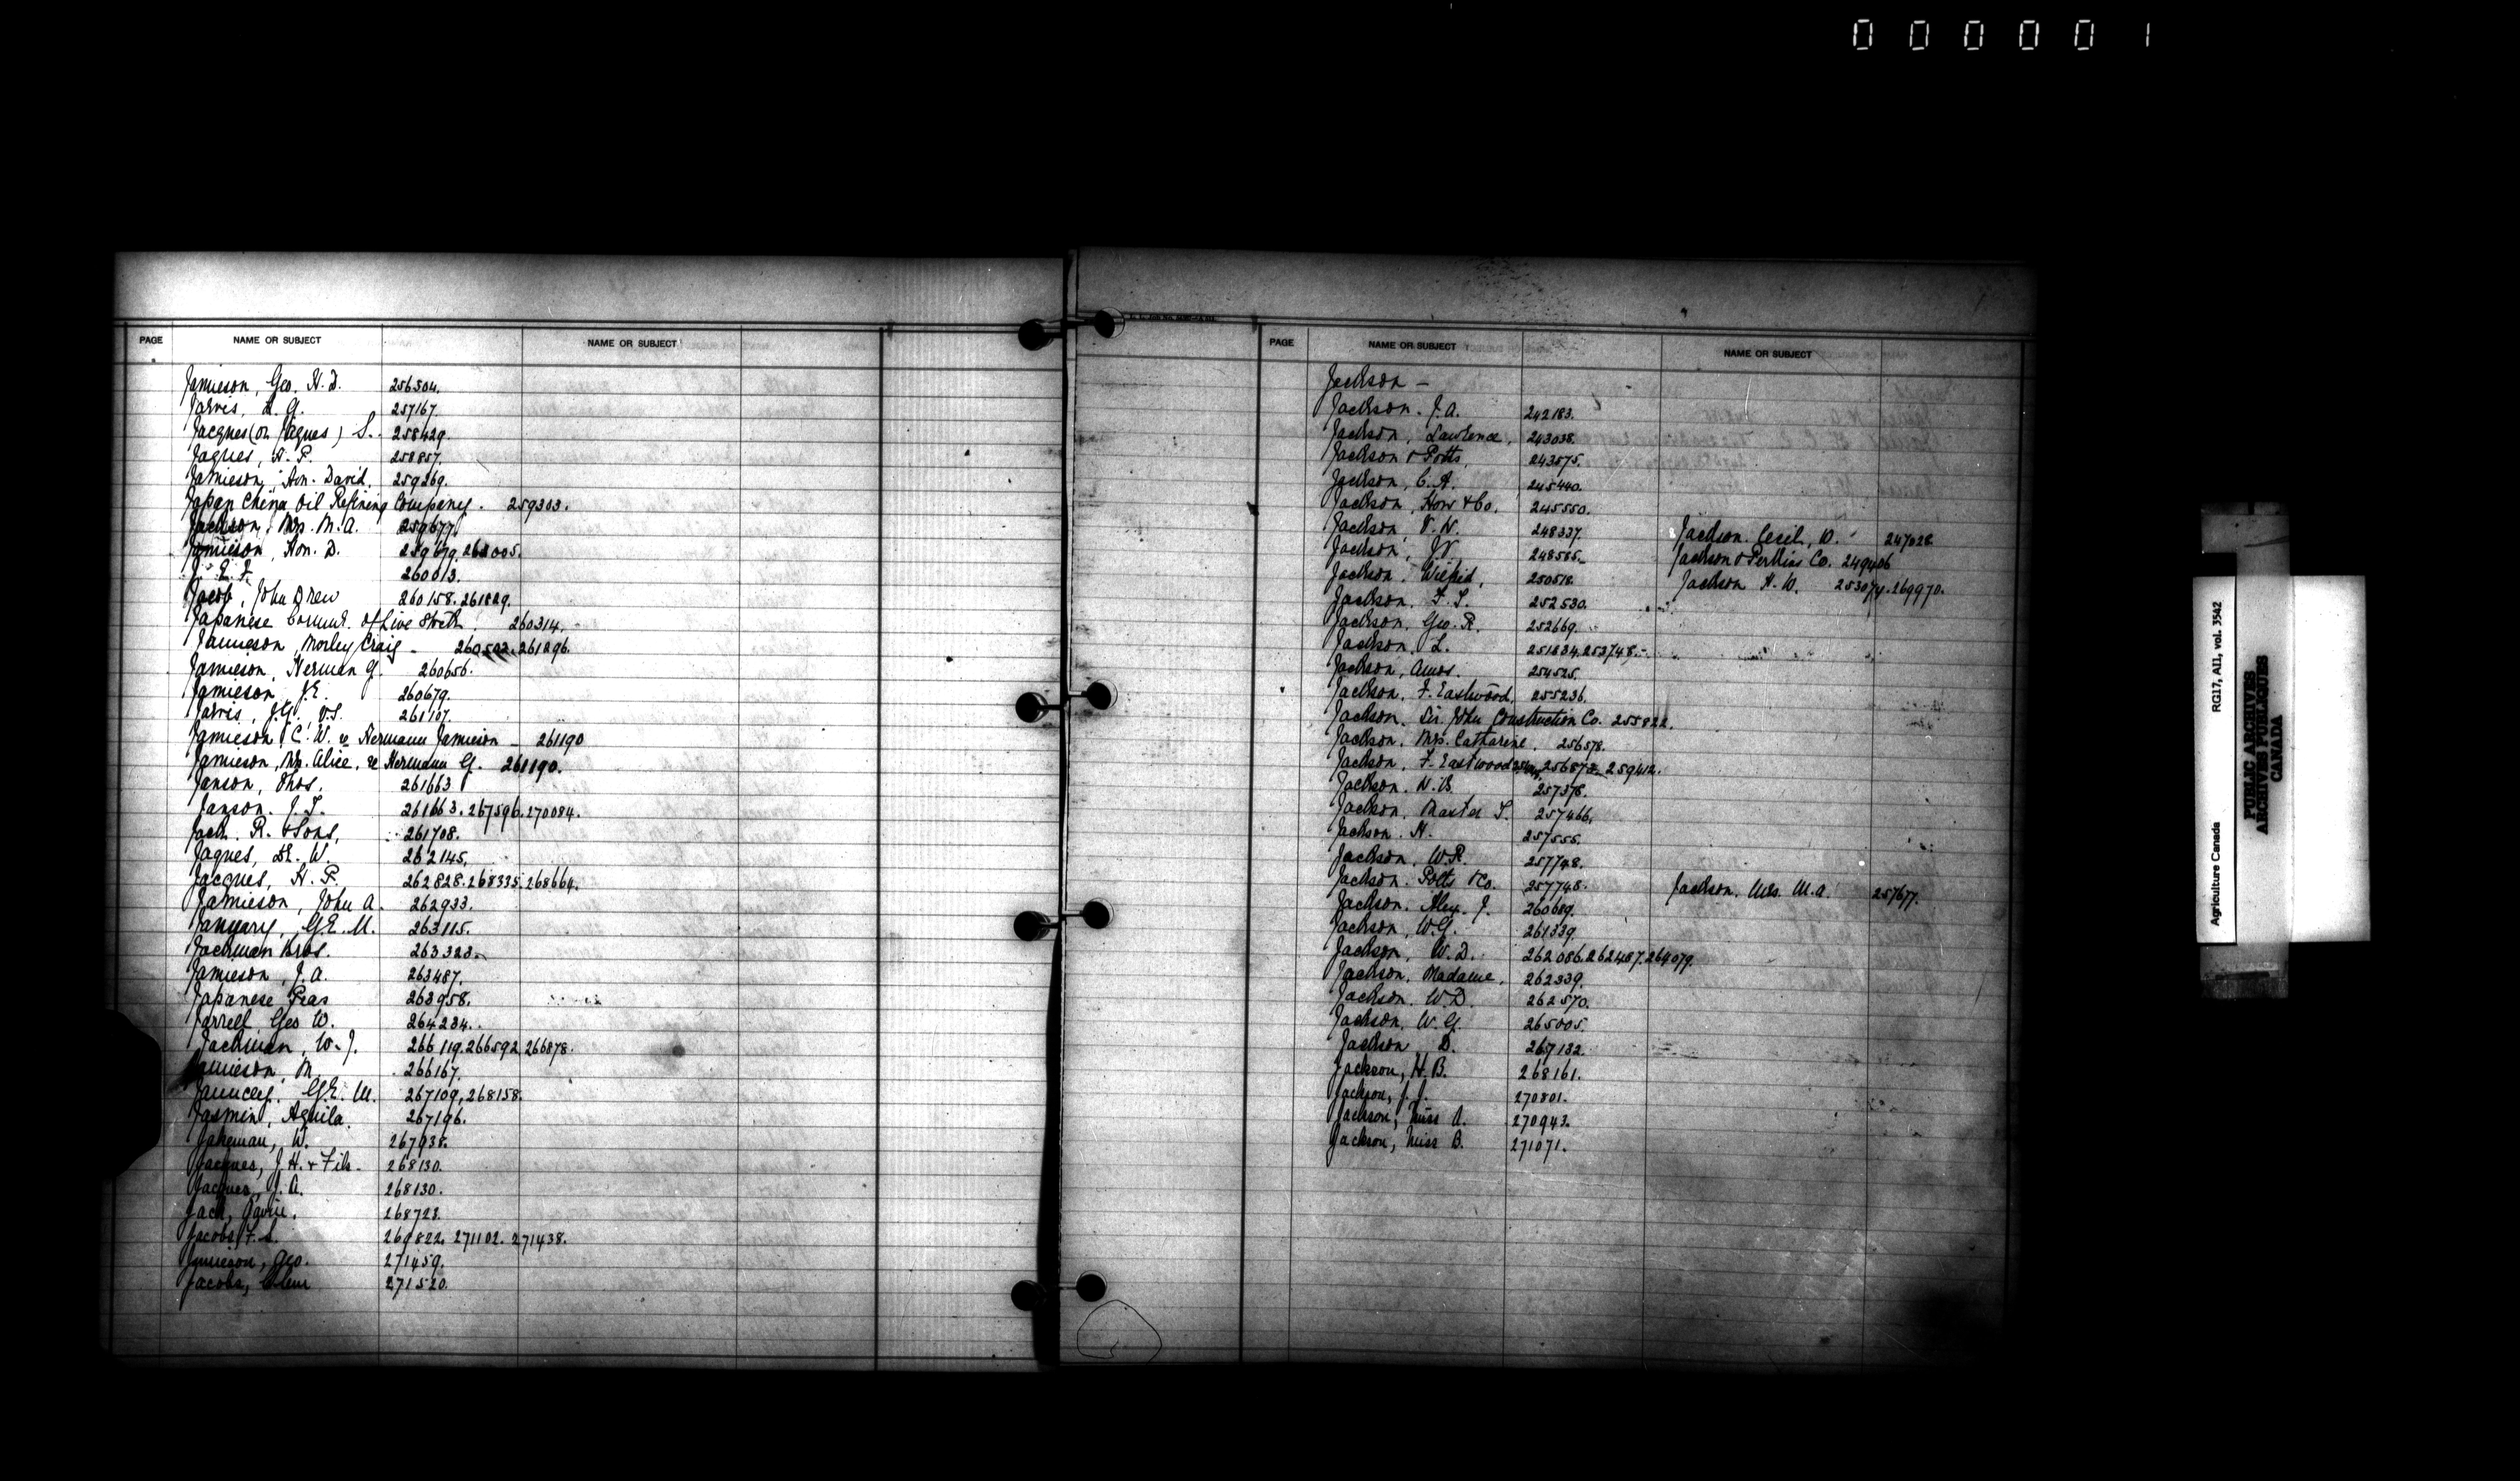 000001
PAGE NAME OR SUBJECT NAME OR SUBJECT
Jamieson, Geo. H. D. 256504.
Jarvis, L. G. 257167.
Jacques (or Jaques) S. 258429.
Jaques, H. P. 258857.
Jamieson, Hon. David. 259269.
Japan China Oil Refining Company. 259303.
Jackson, Mrs. M. A. 259677.
Jamieson, Hon. D. 259679. 262005.
260013.
Jacob, John Drew 260158. 261829.
Japanese Commr. of Live Stock. 260314.
Jamieson, Morley Craig 260502. 261296.
Jamieson, Herman G. 260656.
Jamieson, J.E. 260679.
Jarvis, J.G. V.S. 261107.
Jamieson C. W. re Hermann Jamieson 261190
Jamieson, Mrs. Alice, re Hermann G. 261190.
Janson, Thos. 261663
Janson. J. T. 261663. 267596. 270084.
Jack. R. & Sons, 261708.
Jaques, Dr. W. 262145.
Jacques, H. P. 262828. 268335. 268664.
Jamieson, John A. 262933.
January, G.E. M. 263115.
Jackman Bros. 263323.
Jamieson, J. A. 263487.
Japanese Peas 263958.
Jarrell, Geo W. 264234.
Jackman, W. J. 266119. 266592. 266878.
Jamieson, M. 266167.
Jauncey. G.E. M. 267109, 268158.
Jasmin, Aquila. 267196.
Jakeman, W. 267938.
Jacques, J. H. & Fils. 268130.
Jacques, J. A. 268130.
Jack, 268723.
Jacobs, F. S. 269822. 271102. 271438.
Jamieson, Geo. 271459.
Jacobs, Clem 271520.
PAGE NAME OR SUBJECT NAME OR SUBJECT
Jackson –
Jackson. J. A. 242183.
Jackson, Lawrence, 243038.
Jackson & Potts, 243575.
Jackson, C. A. 245440.
Jackson, How & Co. 245550.
Jackson V. W. 248337. Jackson. Cecil, W. 247028
Jackson, J.V. 248585. Jackson & Perkins Co. 249406
Jackson. Wilfrid, 250518. Jackson H. W. 253074. 269970.
Jackson. F. S. 252530.
Jackson. Geo. R. 252669.
Jackson. L. 251834. 253748.
Jackson, Amos. 254525.
Jackson, F. Eastwood. 255236.
Jackson. Sir John Construction Co. 255822.
Jackson. Mrs. Catharine. 256578.
Jackson, F. Eastwood 256873. 259412.
Jackson. N. B. 257378.
Jackson. Master T. 257466.
Jackson. H. 257555.
Jackson. W. R. 257748.
Jackson. Potts & Co. 257748. Jackson. Mrs. M. A. 257677.
Jackson. Alex. J. 260689.
Jackson, W. G. 261339.
Jackson, W. D. 262086. 262487. 264079.
Jackson. Madame, 262339.
Jackson. W. D. 262570.
Jackson. W. G. 265005.
Jackson D. 267132.
Jackson, H. B. 268161.
Jackson, J. J. 270801.
Jackson, Miss A. 270943.
Jackson, Miss B. 271071.
Agriculture Canada RG17, AII, vol. 3542
PUBLIC ARCHIVES
ARCHIVES PUBLIQUES
CANADA